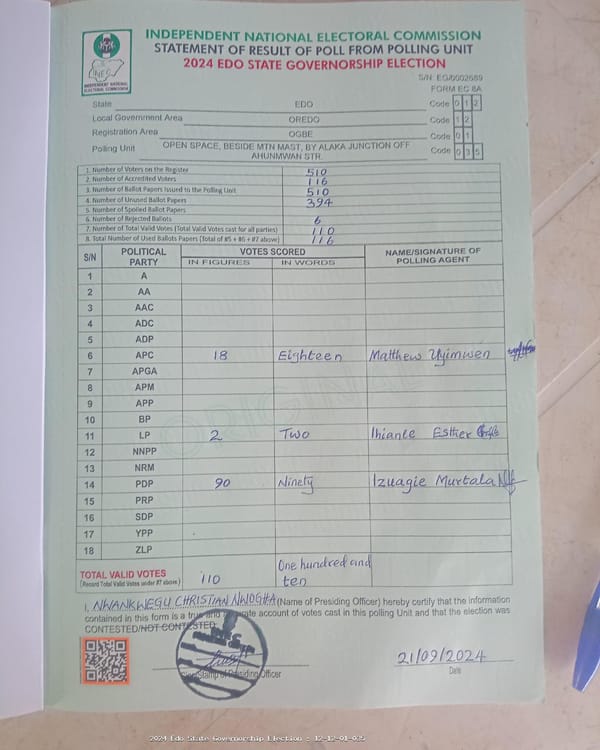 INDEPENDENT NATIONAL ELECTORAL COMMISSION
STATEMENT OF RESULT OF POLL FROM POLLING UNIT
2024 EDO STATE GOVERNORSHIP ELECTION
INEC
INDEPENDENT NATIONAL ELECTORAL COMMISSION
S/N: EG/0002689
FORM EC 8A
State EDO Code 0 1 2
Local Government Area OREDO Code 1 2
Registration Area OGBE Code 0 1
Polling Unit OPEN SPACE, BESIDE MTN MAST, BY ALAKA JUNCTION OFF AHUNMWAN STR. Code 0 3 5
1. Number of Voters on the Register 510
2. Number of Accredited Voters 116
3. Number of Ballot Papers Issued to the Polling Unit 510
4. Number of Unused Ballot Papers 394
5. Number of Spoiled Ballot Papers
6. Number of Rejected Ballots 6
7. Number of Total Valid Votes (Total Valid Votes cast for all parties) 110
8. Total Number of Used Ballots Papers (Total of #5 + #6 + #7 above) 116
S/N POLITICAL PARTY VOTES SCORED NAME/SIGNATURE OF POLLING AGENT
IN FIGURES IN WORDS
1 A
2 AA
3 AAC
4 ADC
5 ADP
6 APC 18 Eighteen Matthew Uyimwen
7 APGA
8 APM
9 APP
10 BP
11 LP 2 Two Ihiante Esther
12 NNPP
13 NRM
14 PDP 90 Ninety Izuagie Murtala
15 PRP
16 SDP
17 YPP
18 ZLP
ORIGINAL
TOTAL VALID VOTES 110 One hundred and ten
(Record Total Valid Votes under #7 above)
I, NWANKWEGU CHRISTIAN NWOGHA (Name of Presiding Officer) hereby certify that the information
contained in this form is a true and account of votes cast in this polling Unit and that the election was
CONTESTED/NOT CONTESTED
21/09/2024
of Presiding Officer Date
2024 Edo State Governorship Election : 12-12-01-035